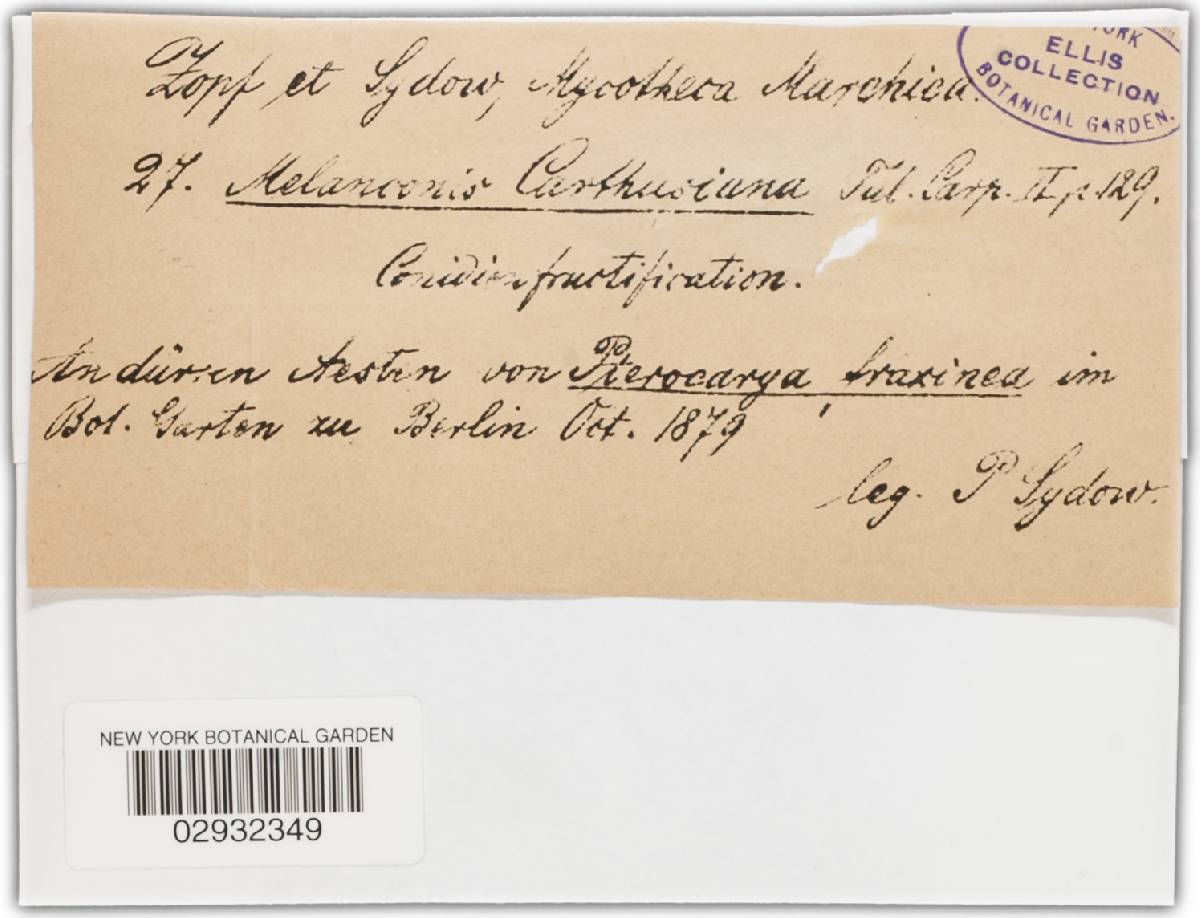 Zopf et Sydow, Mycotheca Marchica.
YORK
ELLIS
COLLECTION
BOTANICAL GARDEN.
27. Melanconis Carthusiana Tul. Carp. II p. 129.
Conidienfructification.
An dürren Aesten von Pterocarya fraxinea im
Bot. Garten zu Berlin Oct. 1879
leg. P Sydow.
NEW YORK BOTANICAL GARDEN
02932349